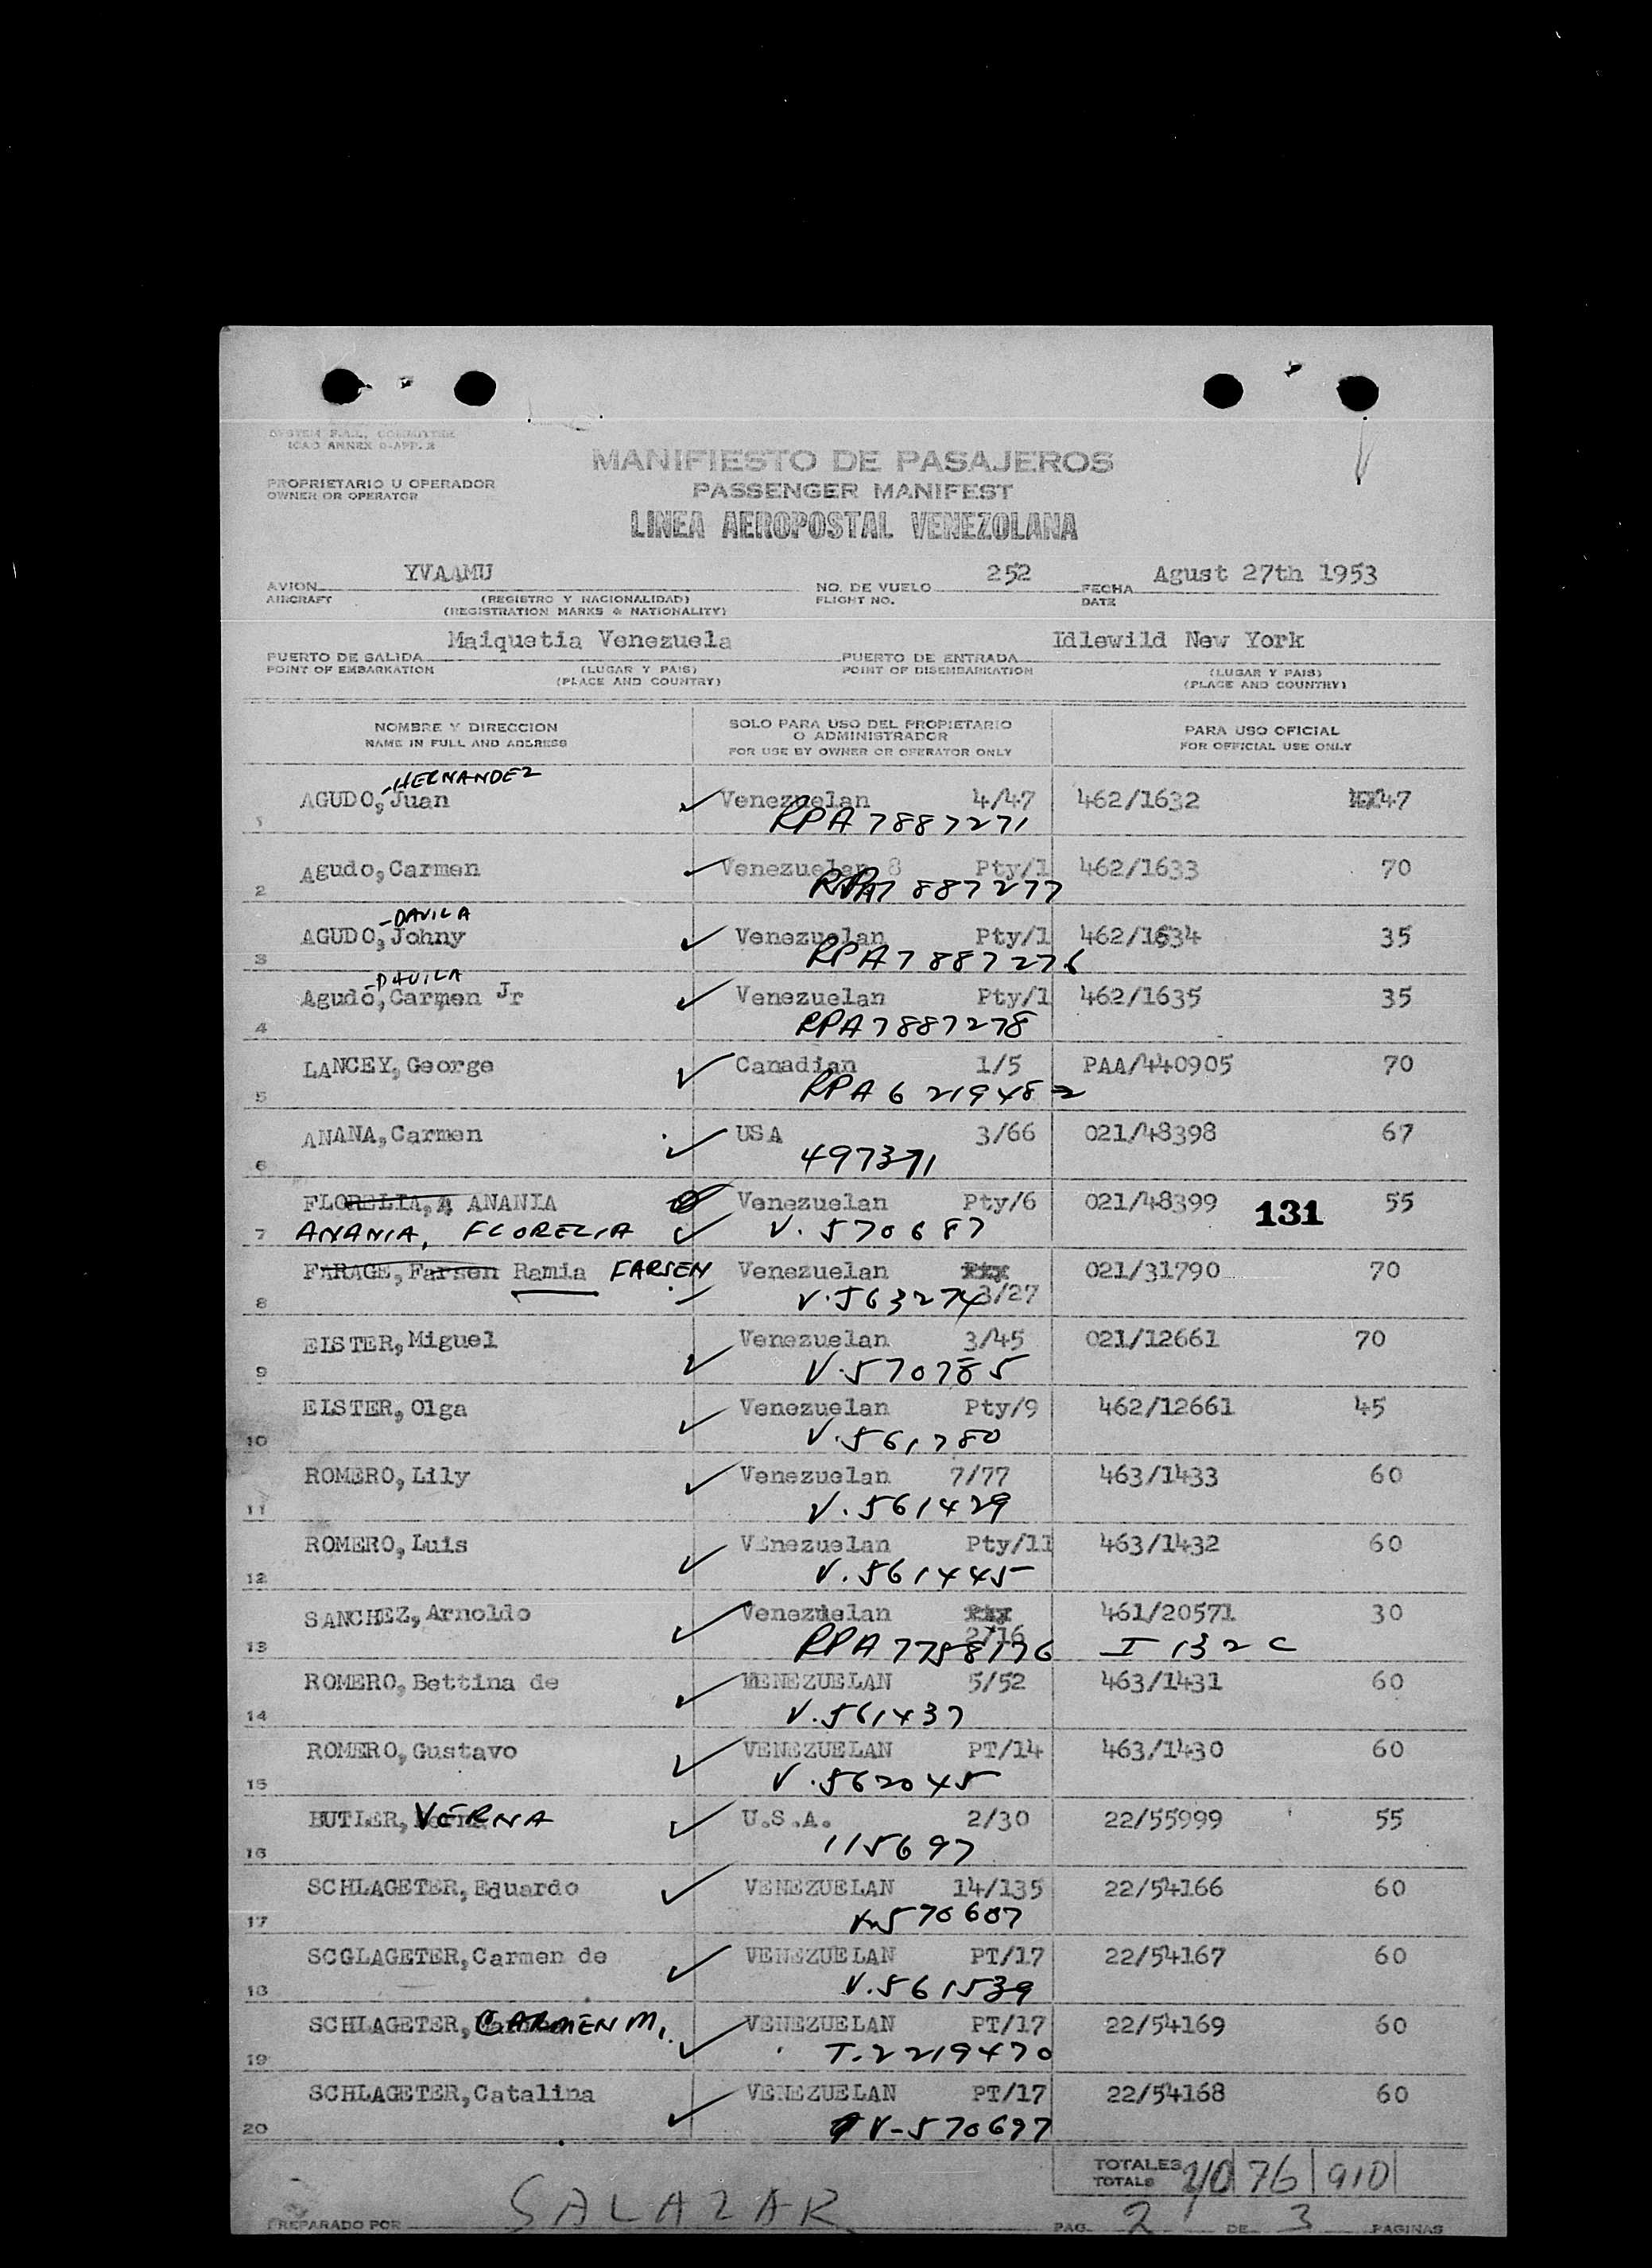 SYSTEM F.A.L. COMMITTEE
ICAO ANNEX 9-APP. 2
MANIFIESTO DE PASAJEROS
PROPRIETARIO U OPERADOR
OWNER OR OPERATOR
PASSENGER MANIFEST
LINEA AEROPOSTAL VENEZOLANA
AVION YVAAMU NO. DE VUELO 252 FECHA Agust 27th 1953
AIRCRAFT (REGISTRO Y NACIONALIDAD) FLIGHT NO. DATE
(REGISTRATION MARKS & NATIONALITY)
PUERTO DE SALIDA Maiquetia Venezuela PUERTO DE ENTRADA Idlewild New York
POINT OF EMBARKATION (LUGAR Y PAIS) POINT OF DISEMBARKATION (LUGAR Y PAIS)
(PLACE AND COUNTRY) (PLACE AND COUNTRY)
NOMBRE Y DIRECCION SOLO PARA USO DEL PROPIETARIO O ADMINISTRADOR PARA USO OFICIAL
NAME IN FULL AND ADDRESS FOR USE BY OWNER OR OPERATOR ONLY FOR OFFICIAL USE ONLY
-HERNANDEZ
AGUDO, Juan Venezuelan 4/47 462/1632 47
1 RPA 7887271
Agudo, Carmen Venezuelan 8 Pty/1 462/1633 70
2 RPA7887277
-DAVILA
AGUDO, Johny Venezuelan Pty/1 462/1634 35
3 RPA7887276
-DAVILA
Agudo, Carmen Jr Venezuelan Pty/1 462/1635 35
4 RPA7887278
LANCEY, George Canadian 1/5 PAA/440905 70
5 RPA 6219482
ANANA, Carmen USA 3/66 021/48398 67
6 497371
FLORELIA, A ANANIA Venezuelan Pty/6 021/48399 131 55
7 ANANIA, FLORELIA V. 570687
FARAGE, Farsen Ramia FARSEN Venezuelan 021/31790 70
8 V.563274 3/27
EISTER, Miguel Venezuelan 3/45 021/12661 70
9 V.570785
EISTER, Olga Venezuelan Pty/9 462/12661 45
10 V.561780
ROMERO, Lily Venezuelan 7/77 463/1433 60
11 V.561429
ROMERO, Luis VEnezuelan Pty/11 463/1432 60
12 V.561445
SANCHEZ, Arnoldo Venezuelan 461/20571 30
13 2/16 RPA7758176 I 132 C
ROMERO, Bettina de VENEZUELAN 5/52 463/1431 60
14 V.561437
ROMERO, Gustavo VENEZUELAN PT/14 463/1430 60
15 V.562045
BUTLER, VERNA U.S.A. 2/30 22/55999 55
16 115697
SCHLAGETER, Eduardo VENEZUELAN 14/135 22/54166 60
17 V.570607
SCGLAGETER, Carmen de VENEZUELAN PT/17 22/54167 60
18 V.561539
SCHLAGETER, CARMEN M. VENEZUELAN PT/17 22/54169 60
19 T.2219470
SCHLAGETER, Catalina VENEZUELAN PT/17 22/54168 60
20 V-570697
TOTALES
TOTALS 20 76 910
PREPARADO POR SALAZAR PAG. 2 DE 3 PAGINAS